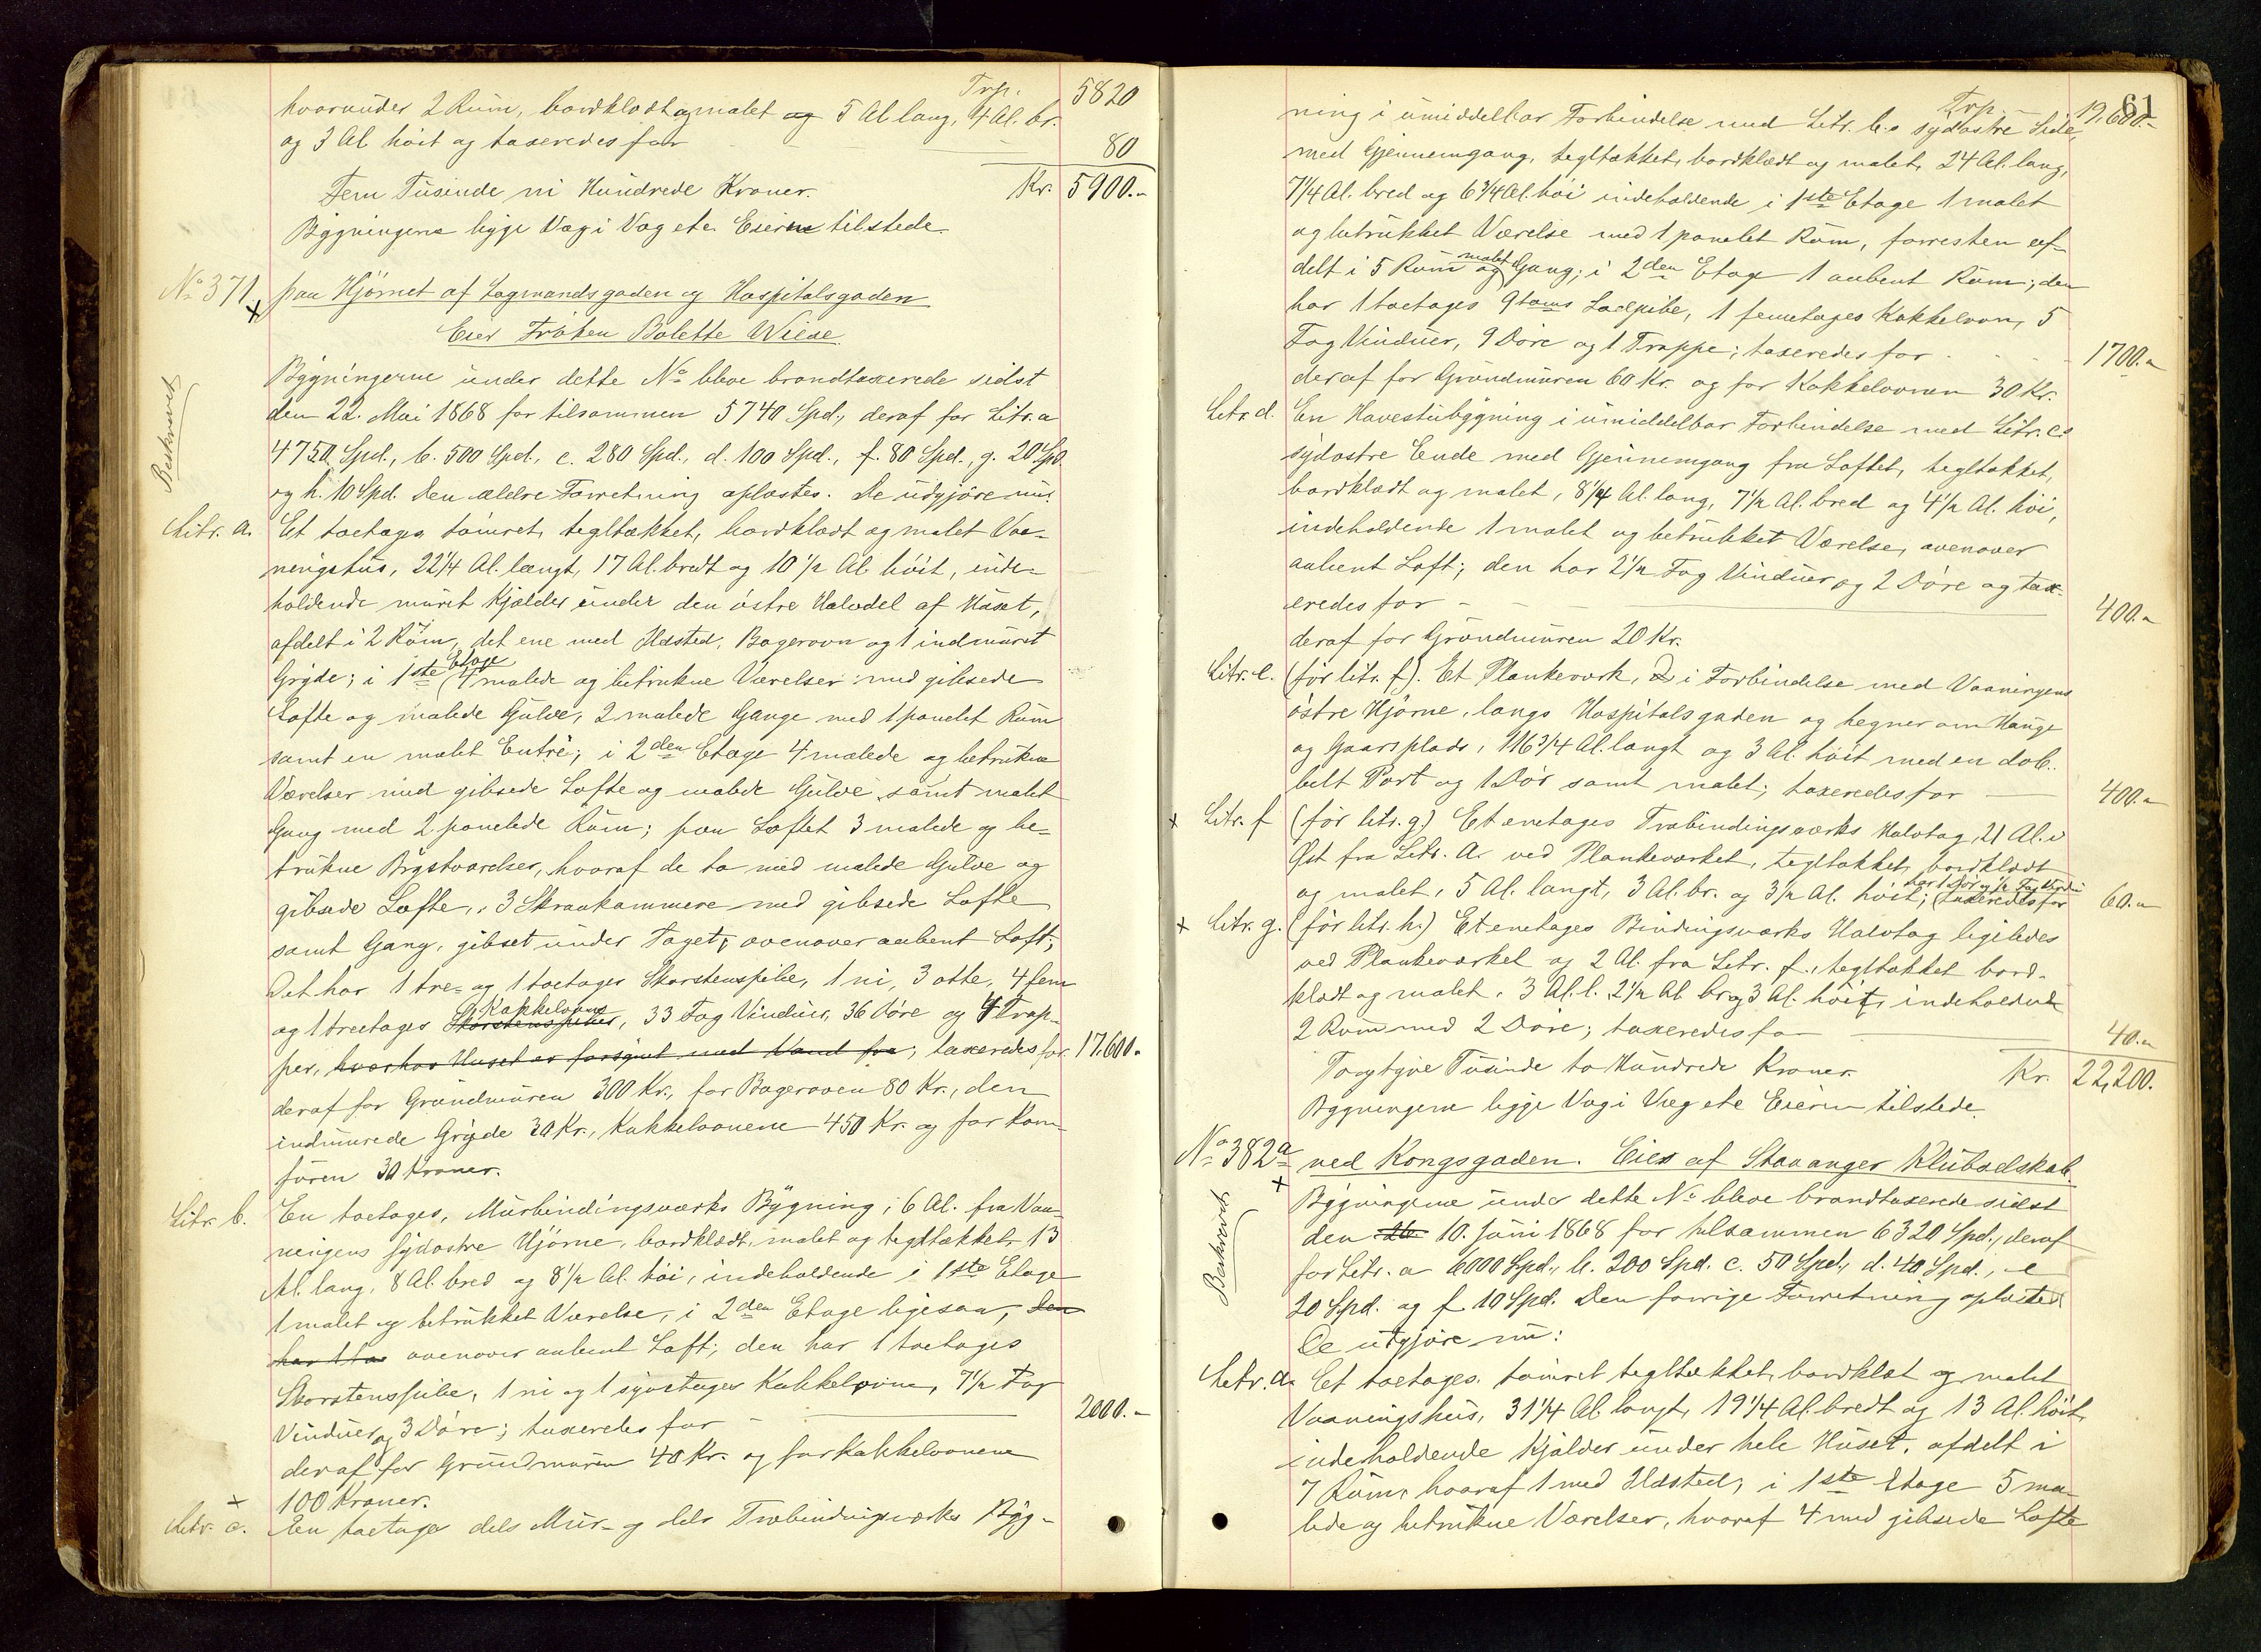 Trp. 5820
hvorunder 2 Rum, bordklædt og malet og 5 Al lang, 4 Al. br.
og 3 Al höit og taxeredes for 80
Fem Tusinde ni Hundrede Kroner. Kr. 5900.-
Bygningerne ligge Væg i Væg etc. Eieren tilstede.
No 371. paa Hjörnet af Lagmandsgaden og Hospitalsgaden
Eier Fröken Bolette Wiese.
Beskrevet
Bygningerne under dette No bleve brandtaxerede sidst
den 22. Mai 1868 for tilsammen 5740 Spd., deraf for Litr. a
4750 Spd., b. 500 Spd., c. 280 Spd., d. 100 Spd., f. 80 Spd., g. 20 Spd.
og h. 10 Spd. Den ældre Forretning oplæstes. De udgjöre nu:
Litr. a. Et toetages tömret, tegltækket, bordklædt og malet Vaa-
ningshus, 22 1/4 Al. længt, 17 Al. bredt og 10 1/2 Al. höit, inde-
holdende muret Kjælder under den östre Halvdel af Huset,
afdelt i 2 Rüm, det ene med Ildsted, Bagerovn og 1 indmuret
Gryde; i 1ste Etage 4 malede og betrukne Værelser med gibsede
Lofte og malede Gulve, 2 malede Gange med 1 panelet Rum
samt en malet Entrè; i 2den Etage 4 malede og betrukne
Værelser med gibsede Lofte og malede Gulve samt malet
Gang med 2 panelede Rum; paa Loftet 3 malede og be-
trukne Brystværelser, hvoraf de to med malede Gulve og
gibsede Lofte, 3 Skraakammere med gibsede Lofte
samt Gang, gibset under Taget, ovenover aabent Loft;
Det har 1 tre- og 1 toetages Skorstenspibe, 1 ni, 3 otte, 4 fem
og 1 treetages Skorstenspiber Kakkelovne, 33 Fag Vinduer, 36 Döre og 4 Trap-
per, hvorhos Huset er forsynet med Vand fra, taxeredes for 17,600.
deraf for Grundmuren 300 Kr., for Bagerovnen 80 Kr., den
indmurede Gryde 30 Kr., Kakkelovnene 450 Kr. og for Kom-
furen 30 Kroner.
Litr. b. En toetages, Murbindingsværks Bygning, 6 Al. fra Vaa-
ningens sydostre Hjörne, bordklædt, malet og tegltækket, 13
Al. lang, 8 Al. bred og 8 1/2 Al. höi, indeholdende i 1ste Etage
1 malet og betrukket Værelse, i 2den Etage ligesaa, den
har 1 toe ovenover aabent Loft; den har 1 toetages
Skorstenspibe, 1 ni og 1 syvetages Kakkelovne, 7 1/2 Fag
Vinduer og 3 Döre; taxeredes for 2000.-
deraf for Grundmuren 40 Kr. og for Kakkelovnene
100 Kroner.
Litr. c. En toetages dels Mur- og dels Træbindingsværks Byg-
61
Trp. 19,600.-
ning i umiddelbar Forbindelse med Litr. b.s sydostre Side,
med Gjennemgang, tegltækket, bordklædt og malet, 24 Al. lang,
7 1/4 Al. bred og 6 3/4 Al. höi indeholdende i 1ste Etage 1 malet
og betrukket Værelse med 1 panelet Rum, forresten af-
delt i 5 Rum og malet Gang; i 2den Etage 1 aabent Rum; den
har 1 toetages 9 toms Lodpibe, 1 femetages Kakkelovn, 5
Fag Vinduer, 9 Döre og 1 Trappe; taxeredes for 1700.-
deraf for Grundmuren 60 Kr. og for Kakkelovnen 30 Kr.
Litr. d. En Havestubygning i umiddelbar Forbindelse med Litr. c.s
sydostre Ende med Gjennemgang fra Loftet, tegltækket,
bordklædt og malet, 8 1/4 Al. lang, 7 1/2 Al. bred og 4 1/2 Al. höi,
indeholdende 1 malet og betrukket Værelse, ovenover
aabent Loft; den har 2 1/2 Fag Vinduer og 2 Döre og tax-
eredes for 400.-
deraf for Grundmuren 20 Kr.
Litr. e. (för litr. f). Et Plankeværk, i Forbindelse med Vaaningens
östre Hjörne, langs Hospitalsgaden og hegner om Hauge
og Gaardsplads, 116 3/4 Al. langt og 3 Al. höit med en dob-
belt Port og 1 Dör samt malet; taxeredes for 400.-
Litr. f (för litr. g) Et enetages Træbindingsværks Halvtag, 21 Al. i
Öst fra Litr. a. ved Plankeværket, tegltækket, bordklædt
og malet, 5 Al. langt, 3 Al. br. og 3 1/2 Al. höit; har 1 Dör og 1/2 Fag Vindu taxeredes for 60.-
Litr. g. (för litr. h.) Et enetages Bindingsværks Halvtag ligeledes
ved Plankeværket og 2 Al. fra Litr. f., tegltækket bord-
klædt og malet, 3 Al. l. 2 1/2 Al br. og 3 Al. höit, indeholdende
2 Rum med 2 Döre; taxeredes for 40.-
Toogtyve Tusinde to Hundrede Kroner. Kr. 22,200.
Bygningerne ligge Væg i Væg etc Eieren tilstede.
No 382a ved Kongsgaden. Eies af Stavanger Klubselskab.
Beskrevet
Bygningerne under dette No bleve brandtaxerede sidst
den 10. Juni 1868 for tilsammen 6320 Spd., deraf
for Litr. a 6000 Spd., b. 200 Spd. c. 50 Spd., d. 40 Spd., e
20 Spd. og f. 10 Spd. Den forrige Forretning oplæstes
De udgjöre nu:
Litr. a. Et toetages tömret tegltækket, bordklæt og malet
Vaaningshus, 31 1/4 Al. langt, 19 1/4 Al. bredt og 13 Al. höit,
indeholdende Kjælder under hele Huset, afdelt i
7 Rum, hvoraf 1 med Ildsted; i 1ste Etage 5 ma-
lede og betrukne Værelser, hvoraf 4 med gibsede Lofte